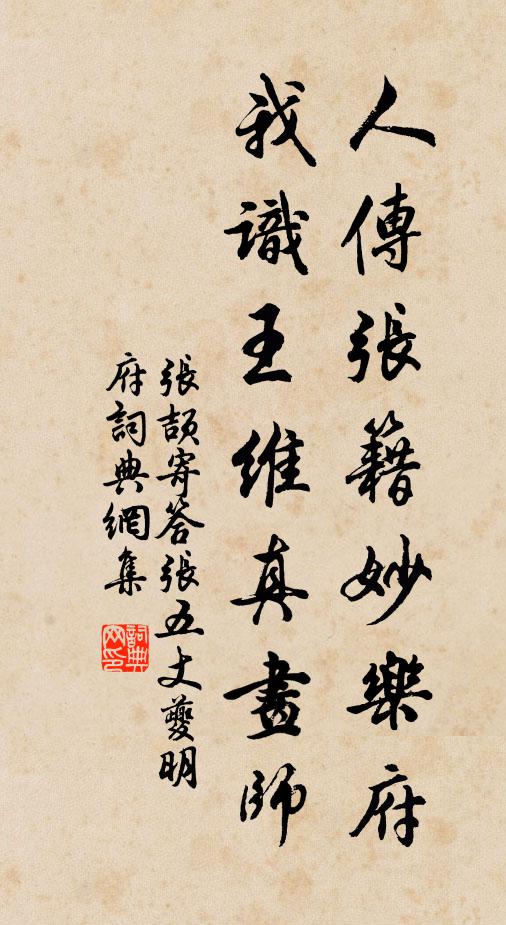 人傳張籍妙樂府
我識王維真畫師
張頡寄答張五丈夔明
府詞典網集
詞典網印